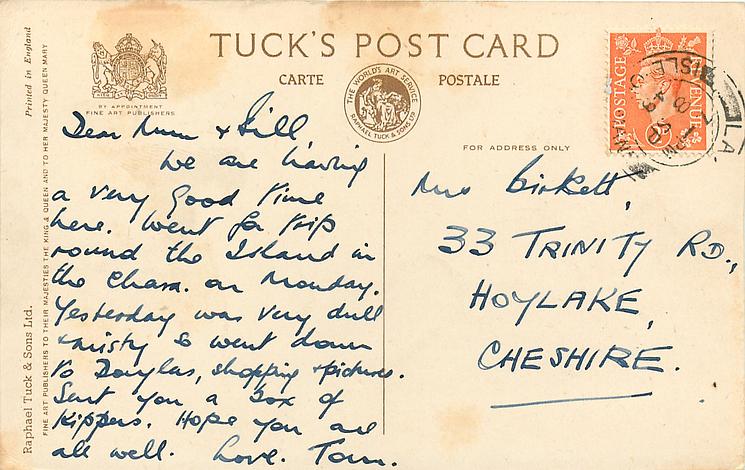 TUCK'S POST CARD
CARTE POSTALE
BY APPOINTMENT
FINE ART PUBLISHERS
THE WORLD'S ART SERVICE
RAPHAEL TUCK & SONS LTD
FOR ADDRESS ONLY
Printed in England
Raphael Tuck & Sons Ltd.
FINE ART PUBLISHERS TO THEIR MAJESTIES THE KING & QUEEN AND TO HER MAJESTY QUEEN MARY
Dear Mum &
We are having
a very good time
here. Went for trip
round the Island in
the Chara. on Monday.
Yesterday was very dull
& misty so went down
to Douglas, shopping & pictures.
Sent you a Box of
Kippers. Hope you are
all well. Love. Tom.
Mrs Birkett,
33 TRINITY RD.,
HOYLAKE,
CHESHIRE.
POSTAGE REVENUE
ISLE OF MAN